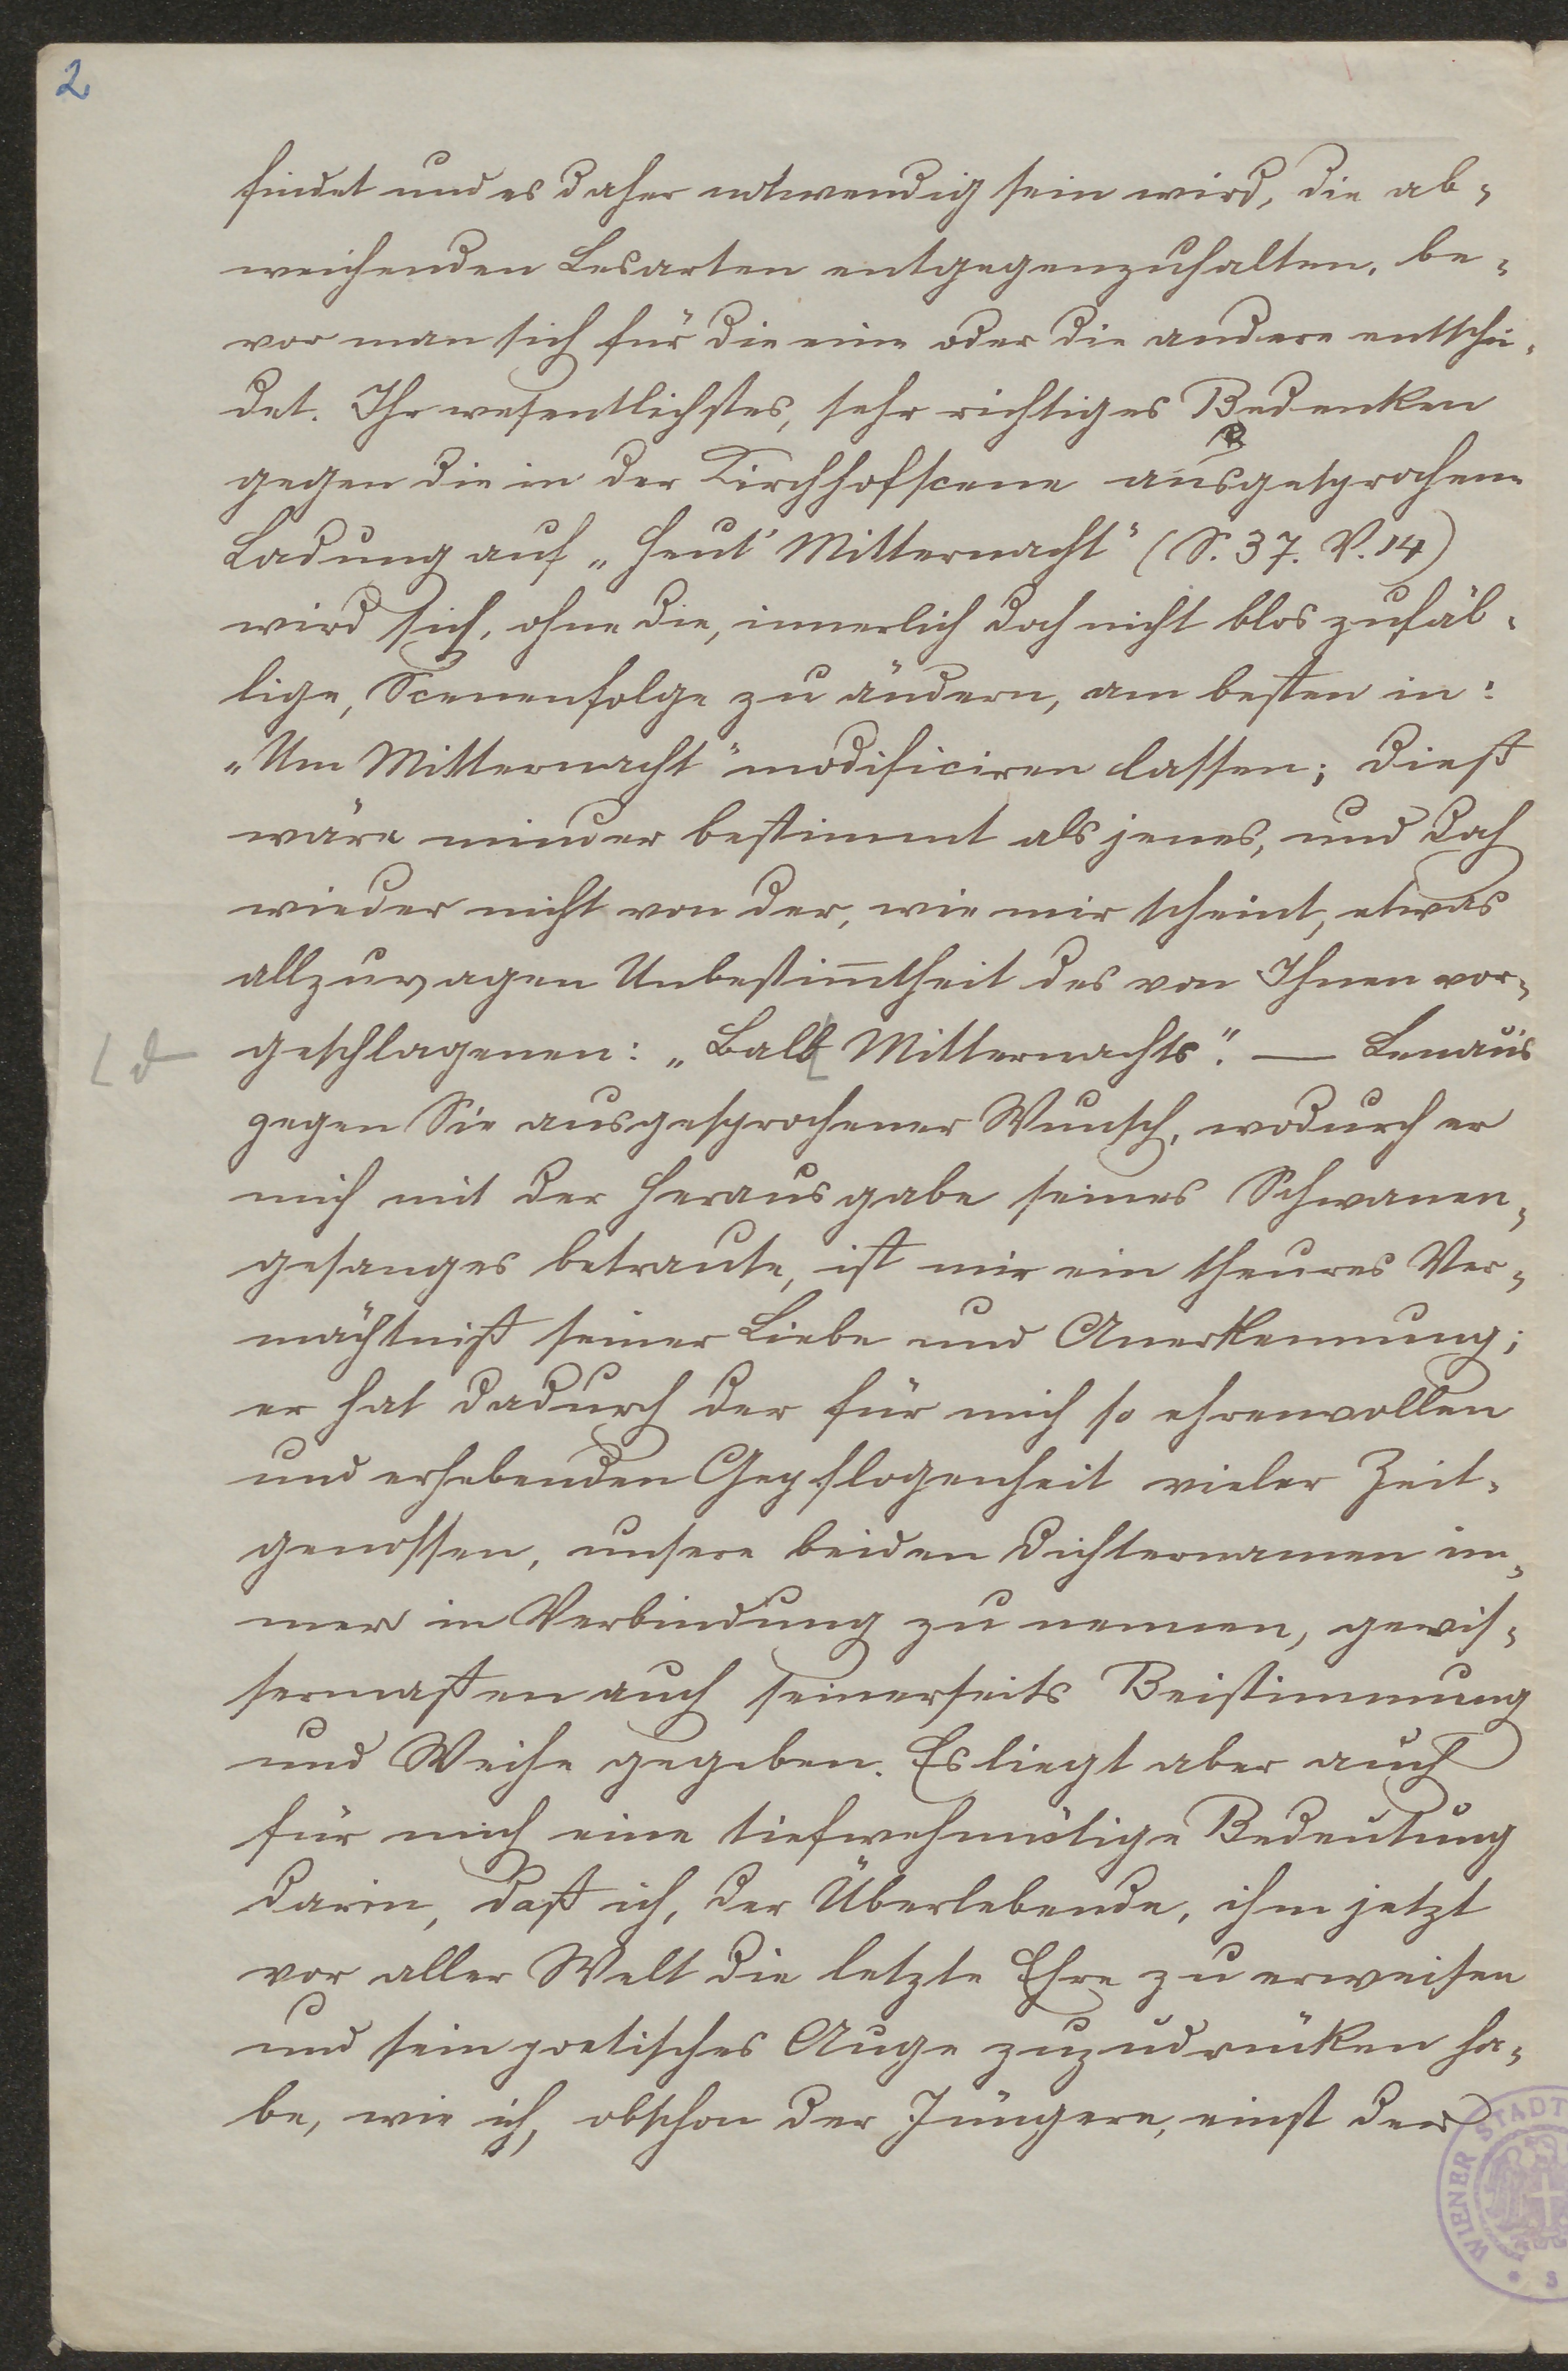 2
findet und es daher notwendig sein wird, die ab-
weichenden Lesarten entgegenzuhalten, be-
vor man sich für die eine oder die andere entschei-
det. Ihr wesentlichstes, sehr richtiges Bedenken
gegen die in der Kirchhofscene ausgesprochene
Ladung auf „Heut' Mitternacht" (S. 37. V. 14)
wird sich, ohne die, innerlich doch nicht blos zufäl-
lige, Scenenfolge zu ändern, am besten in:
„Um Mitternacht" modificiren lassen; dieß
wäre minder bestimmt als jenes, und doch
wieder nicht von der, wie mir scheint, etwas
allzuvagen Unbestim̅theit des von Ihnen vor-
d geschlagenen: „Balb Mitternachts". — Lenau's
gegen Sie ausgesprochener Wunsch, wodurch er
mich mit der Herausgabe seines Schwanen-
gesanges betraute, ist mir ein theures Ver-
mächtniß seiner Liebe und Anerkennung;
er hat dadurch der für mich so ehrenvollen
und erhebenden Gepflogenheit vieler Zeit-
genossen, unsere beiden Dichternamen im-
mer in Verbindung zu nennen, gewis-
sermaßen auch seinerseits Beistimmung
und Weihe gegeben. Es liegt aber auch
für mich eine tiefwehmütige Bedeutung
darin, daß ich, der Überlebende, ihm jetzt
vor aller Welt die letzte Ehre zu erweisen
und sein poetisches Auge zuzudrücken ha-
be, wie ich, obschon der Jüngere, einst der
WIENER STADT